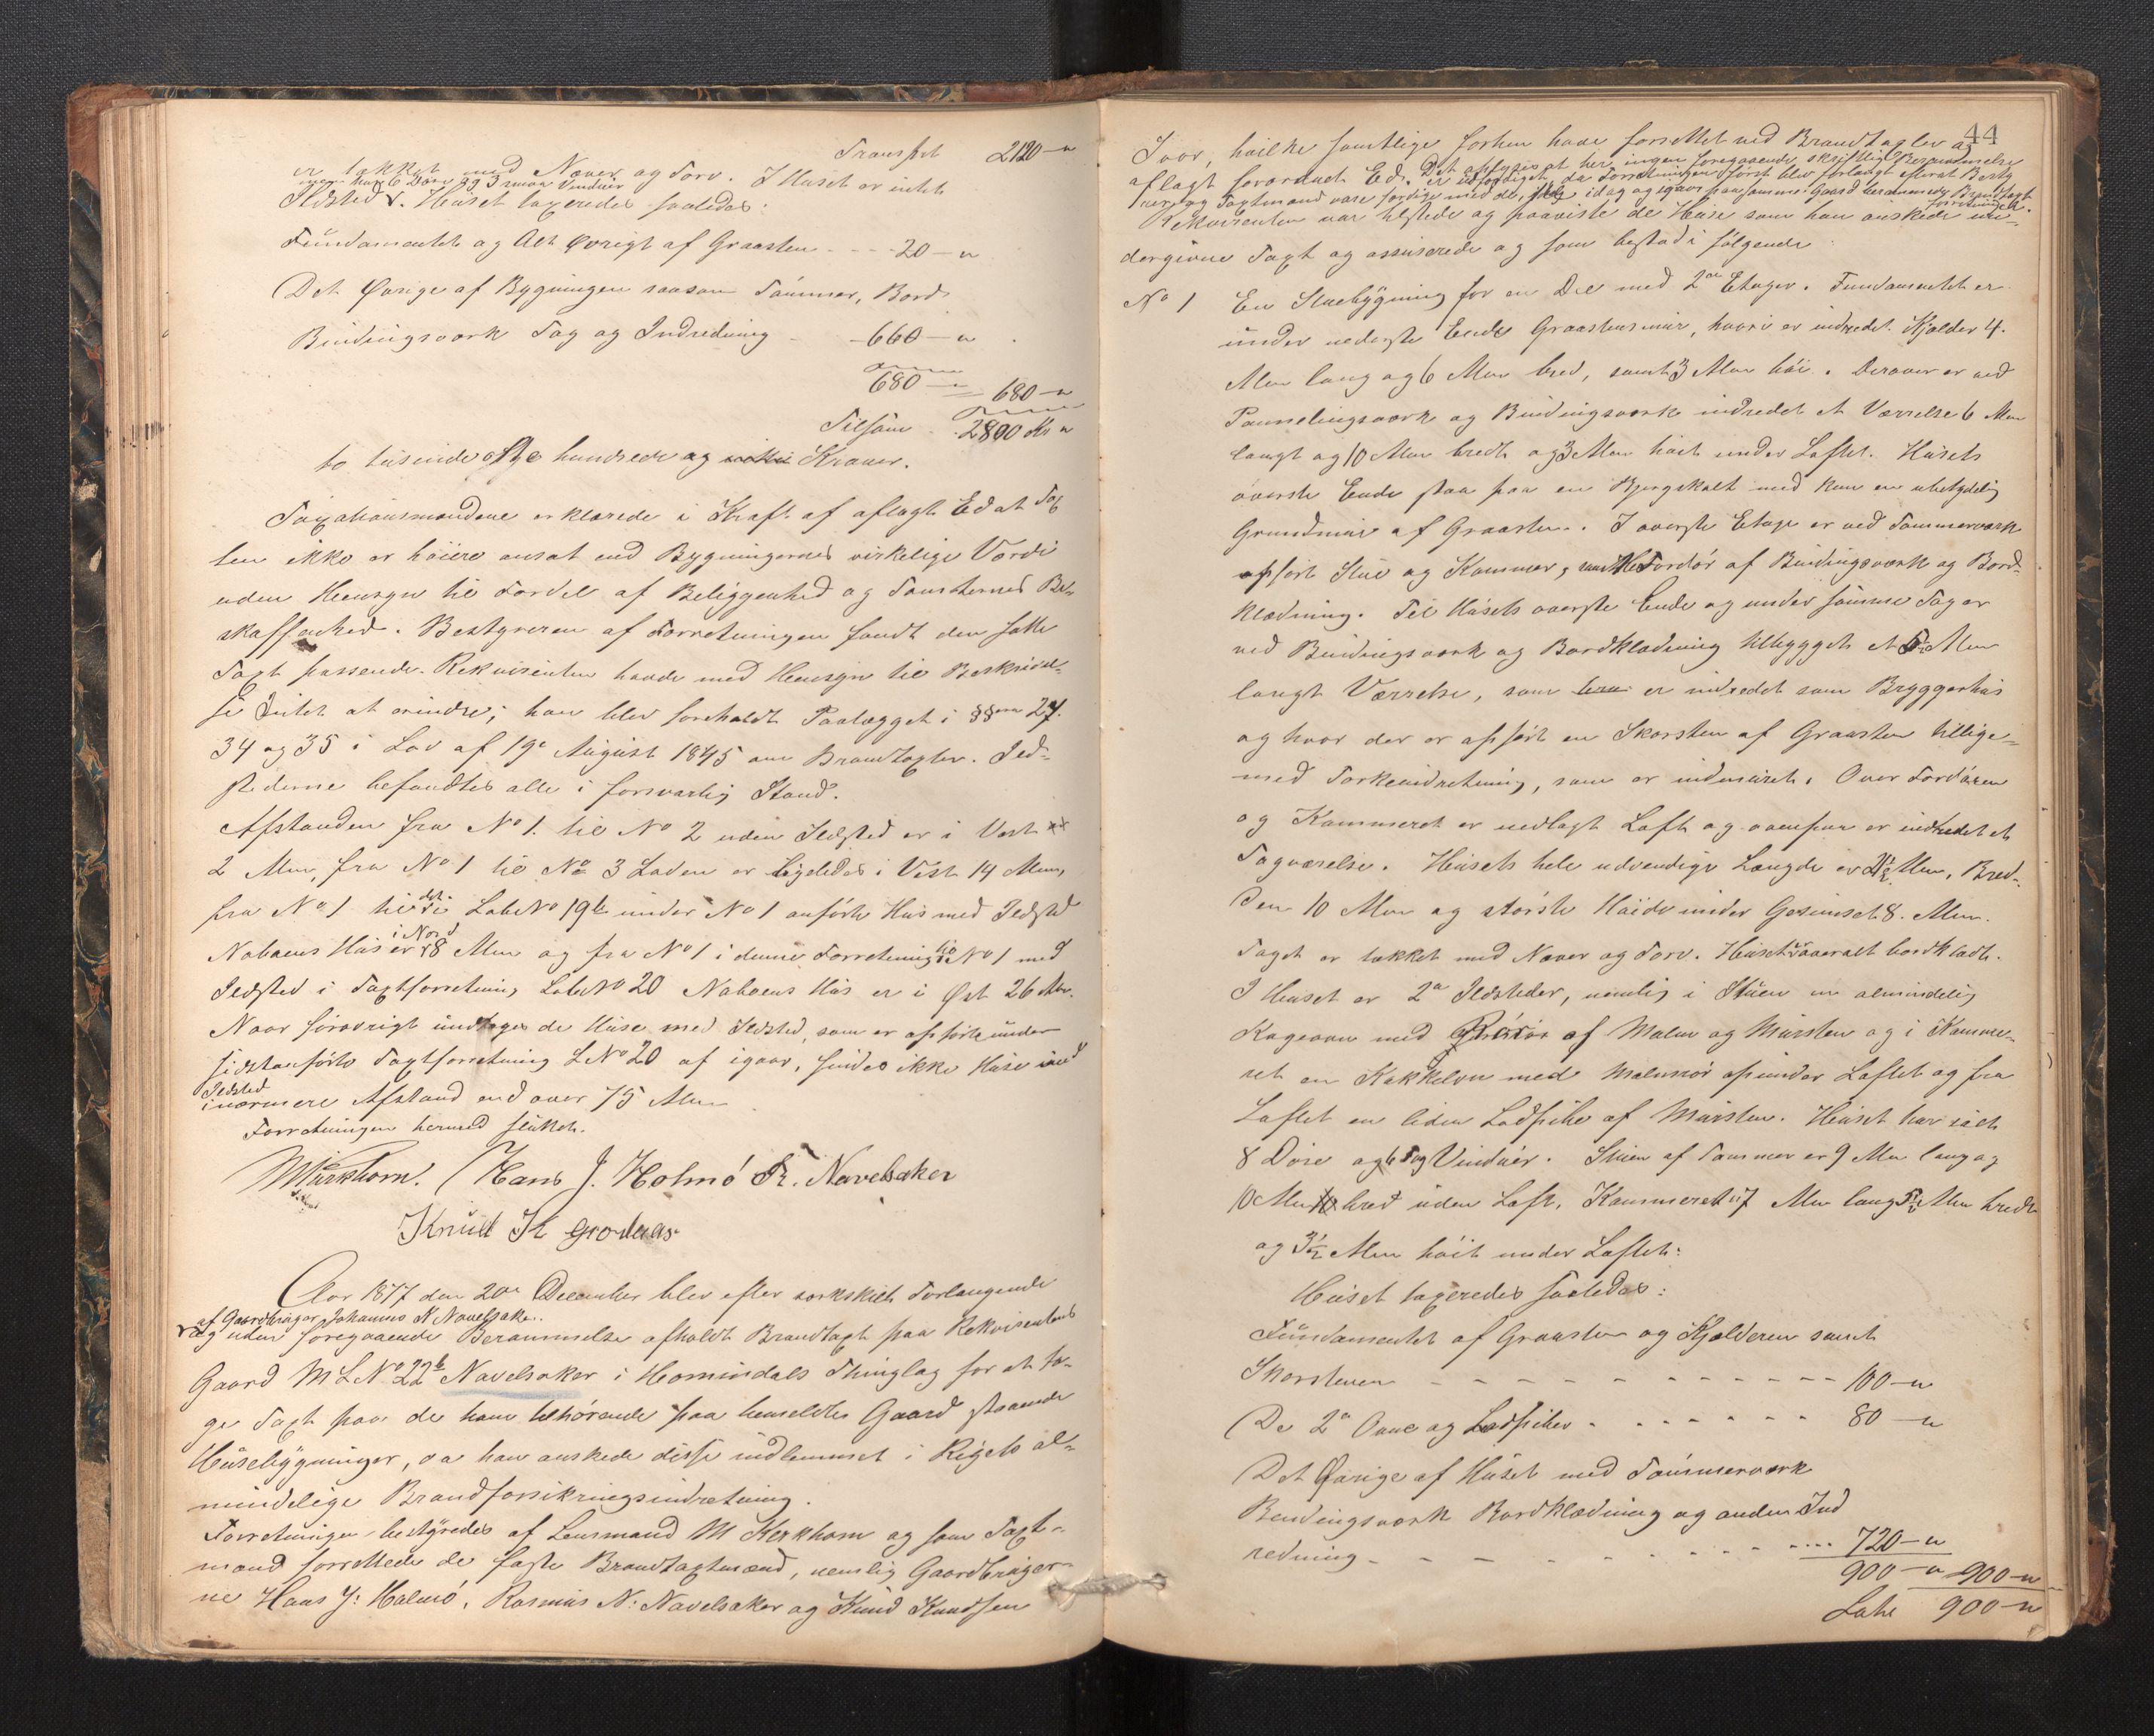 Transport 2120 - "
er tækket med Næver og Torv. I Huset er intet
men har 6 Døre og 3 smaa Vinduer
Ildsted. Huset taxeredes saaledes:
Fundamentet og Alt øvrigt af Graasten - - - 20 - "
Det Øvrige af Bygningen saasom Tømmer, Bord
Bindingsværk Tag og Indredning - 660 - "
680 - " 680 - "
Tilsam 2800 Kr "
to tusinde otte hundrede og Kroner.
Taxationsmændene erklærede i Kraft af aflagt Ed at Tax
ten ikke er høiere ansat end Bygningernes virkelige Værdi
uden Hensyn til Fordel af Beliggenhed og Tomternes Be-
skaffenhed. Bestyreren af Forretningen fandt den satte
Taxt passende. Rekvirenten havde med Hensyn til Beskrivel-
se Intet at erindre; han blev foreholdt Paalægget i §§en 27.
34 og 35 i Lov af 19de August 1845 om Brandtaxter. Ild-
stederne befandtes alle i forsvarlig Stand.
Afstanden fra No 1. til No 2 uden Ildsted er i Vest
2 Alen, fra No 1 til No 3 Laden er ligeledes i Vest 14 Alen,
fra No 1 til det i Løbe No 19b under No 1 anførte Hus med Ildsted
Naboens Hus er i Nord 8 Alen og fra No 1 i denne Forretning til No 1 med
Ildsted i Taxtforretning Løbe No 20 Naboens Hus er i Øst 26 Alen.
Naar forøvrigt undtages de Huse med Ildsted, som er opførte under
sidstanførte Taxtforretning L No 20 af igaar, findes ikke Huse med
Ildsted
i nærmere Afstand end over 75 Alen
Forretningen hermed sluttet.
M Kirkhorn. Hans J. Holmø R. Navelsaker
Knud K Grodaas
Aar 1877 den 20de December blev efter særskilt Forlangende
af Gaardbruger Johannes N Navelsaker
og uden foregaaende Berammelse afholdt Brandtaxt paa Rekvirentens
Gaard M L No 22b Navelsaker i Hornindals Thinglag for at ta-
ge Taxt paa de ham tilhørende paa bemeldte Gaard staaende
Husebygninger, da han ønskede disse indlemmet i Rigets al-
mindelige Brandforsikringsindretning.
Forretningen bestyredes af Lensmand M Kirkhorn og som Taxt-
mænd forrettede de faste Brandtaxtmænd, nemlig Gaardbruger-
ne Hans J: Holmø, Rasmus N: Navelsaker og Knud Knudsen
44
Ivar, hvilke samtlige forhen have forrettet ved Brandtaxter og
aflagt forordnet Ed. Det oplyses at her ingen foregaaende skriftlig Berammelse
er udfærdiget, da Forretningen først blev forlangt efterat Besty
rer og Taxtmænd vare færdige med de, idag og igaar paa samme Gaard berammede Brandtaxt
forretninger.
Rekvirenten var tilstede og paaviste de Huse som han ønskede un-
dergivne Taxt og assurerede og som bestod i følgende:
No 1 En Stuebygning for en Del med 2de Etager. Fundamentet er
under nederste Ende Graastensmur, hvori er indredet Kjælder 4.
Alen lang og 6 Alen bred, samt 3 Alen høi. Derover er ved
Pannelingsværk og Bindingsværk indredet et Værrelse 6 Alen
langt og 10 Alen bredt og 3 Alen høit under Loftet. Husets
øverste Ende staa paa en Bjergskalt med kun en ubetydelig
Grundmur af Graasten. I øverste Etage er ved Tømmerværk
opført Stue og Kammer, samt Fordør af Bindingsværk og Bord-
klædning. Til Husets øverste Ende og under samme Tag er
ved Bindingsværk og Bordklædning tilbygget et 5½ Alen
langt Værrelse, som er indredet som Bryggerhus
og hvor der er opført en Skorsten af Graasten tillige-
med Tørkeindretning, som er indmuret. Over Fordøren
og Kammeret er nedlagt Loft og ovenpaa er indredet et
Tagværelse. Husets hele udvendige Længde er 21½ Alen, Bred-
den 10 Alen og største Høide under Gesimset 8. Alen.
Taget er tækket med Næver og Torv. Huset er overalt bordklædt.
I Huset er 2de Ildsteder, nemlig i Stuen en almindelig
Kogeovn med Rør af Malm og Mursten og i Kamme-
ret en Kakkelovn med Malmrør op under Loftet og fra
Loftet en liden Lodpibe af Mursten. Huset har ialt
8 Døre og 6 Fag Vinduer. Stuen af Tømmer er 9 Alen lang og
10 Alen bred uden Loft, Kammeret 7 Alen langt 5½ Alen bredt
og 3½ Alen høit under Loftet:
Huset taxeredes saaledes:
Fundamentet af Graasten og Kjælderen samt
Skorstenen - - - - - - - - - - - 100 - "
De 2de Ovne og Lodpiber - - - - - - - 80 - "
Det Øvrige af Huset med Tømmerværk
Bindingsværk Bordklædning og anden Ind
redning - - - - - - - - - 720 - "
900 - " 900 - "
Late 900 - "